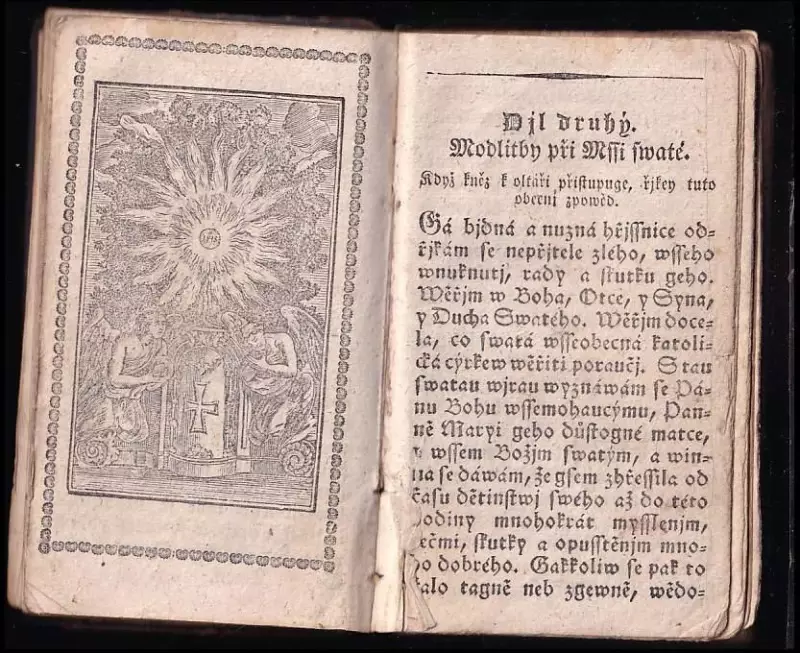 IHS
Djl druhý.
Modlitby při Mssi swaté.
Když kněz k oltáři přistupuge, řjkey tuto
obecní zpowěd.
Gá bjdná a nuzná hřjssnice od=
řjkám se nepřjtele zlého, wsseho
wnuknutj, rady a skutku geho.
Wěřjm w Boha, Otce, y Syna,
y Ducha Swatého. Wěřjm doce=
la, co swatá wsseobecná katoli=
cká cýrkew wěřiti poraučj. S tau
swatau wjrau wyznáwám se Pá=
nu Bohu wssemohaucýmu, Pan=
ně Maryi geho důstogné matce,
y wssem Božjm swatým, a win=
na se dáwám, že gsem zhřessila od
času dětinstwj swého až do této
hodiny mnohokrát mysslenjm,
řečmi, skutky a opusstěnjm mno=
ho dobrého. Gakkoliw se pak to
stalo tagně neb zgewně, wědo=